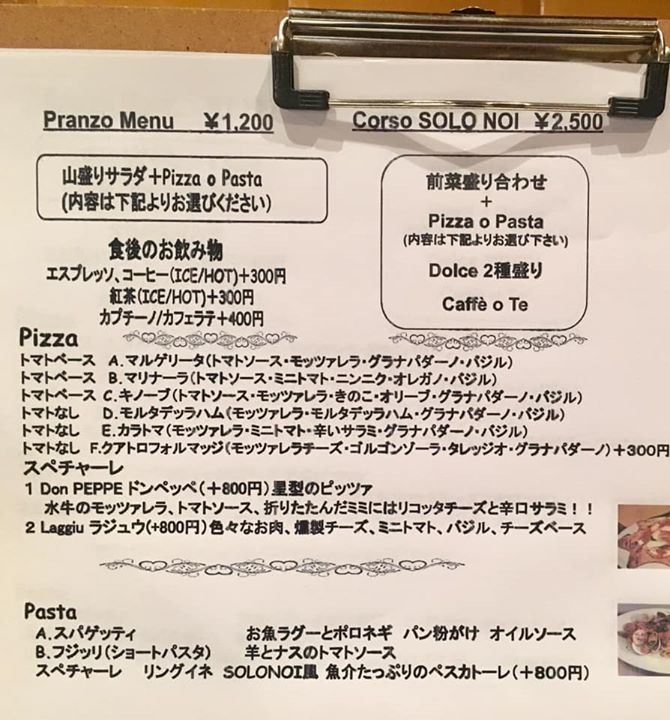 Pranzo Menu ¥1,200
山盛りサラダ+Pizza o Pasta
(内容は下記よりお選びください)
食後のお飲み物
エスプレッソ、コーヒー(ICE/HOT)+300円
紅茶(ICE/HOT)+300円
カプチーノ/カフェラテ+400円
Corso SOLO NOI ¥2,500
前菜盛り合わせ
+
Pizza o Pasta
(内容は下記よりお選び下さい)
Dolce 2種盛り
Caffè o Te
Pizza
トマトベース A.マルゲリータ(トマトソース・モッツァレラ・グラナパダーノ・バジル)
トマトベース B.マリナーラ(トマトソース・ミニトマト・ニンニク・オレガノ・バジル)
トマトベース C.キノーブ(トマトソース・モッツァレラ・きのこ・オリーブ・グラナパダーノ・バジル)
トマトなし D.モルタデッラハム(モッツァレラ・モルタデッラハム・グラナパダーノ・バジル)
トマトなし E.カラトマ(モッツァレラ・ミニトマト・辛いサラミ・グラナパダーノ・バジル)
トマトなし F.クアトロフォルマッジ(モッツァレラチーズ・ゴルゴンゾーラ・タレッジオ・グラナパダーノ)+300円
スペチャーレ
1 Don PEPPE ドンペッペ(+800円)星型のピッツァ
水牛のモッツァレラ、トマトソース、折りたたんだミミにはリコッタチーズと辛口サラミ!!
2 Laggiu ラジュウ(+800円)色々なお肉、燻製チーズ、ミニトマト、バジル、チーズベース
Pasta
A.スパゲッティ お魚ラグーとポロネギ パン粉がけ オイルソース
B.フジッリ(ショートパスタ) 羊とナスのトマトソース
スペチャーレ リングイネ SOLONOI風 魚介たっぷりのペスカトーレ(+800円)